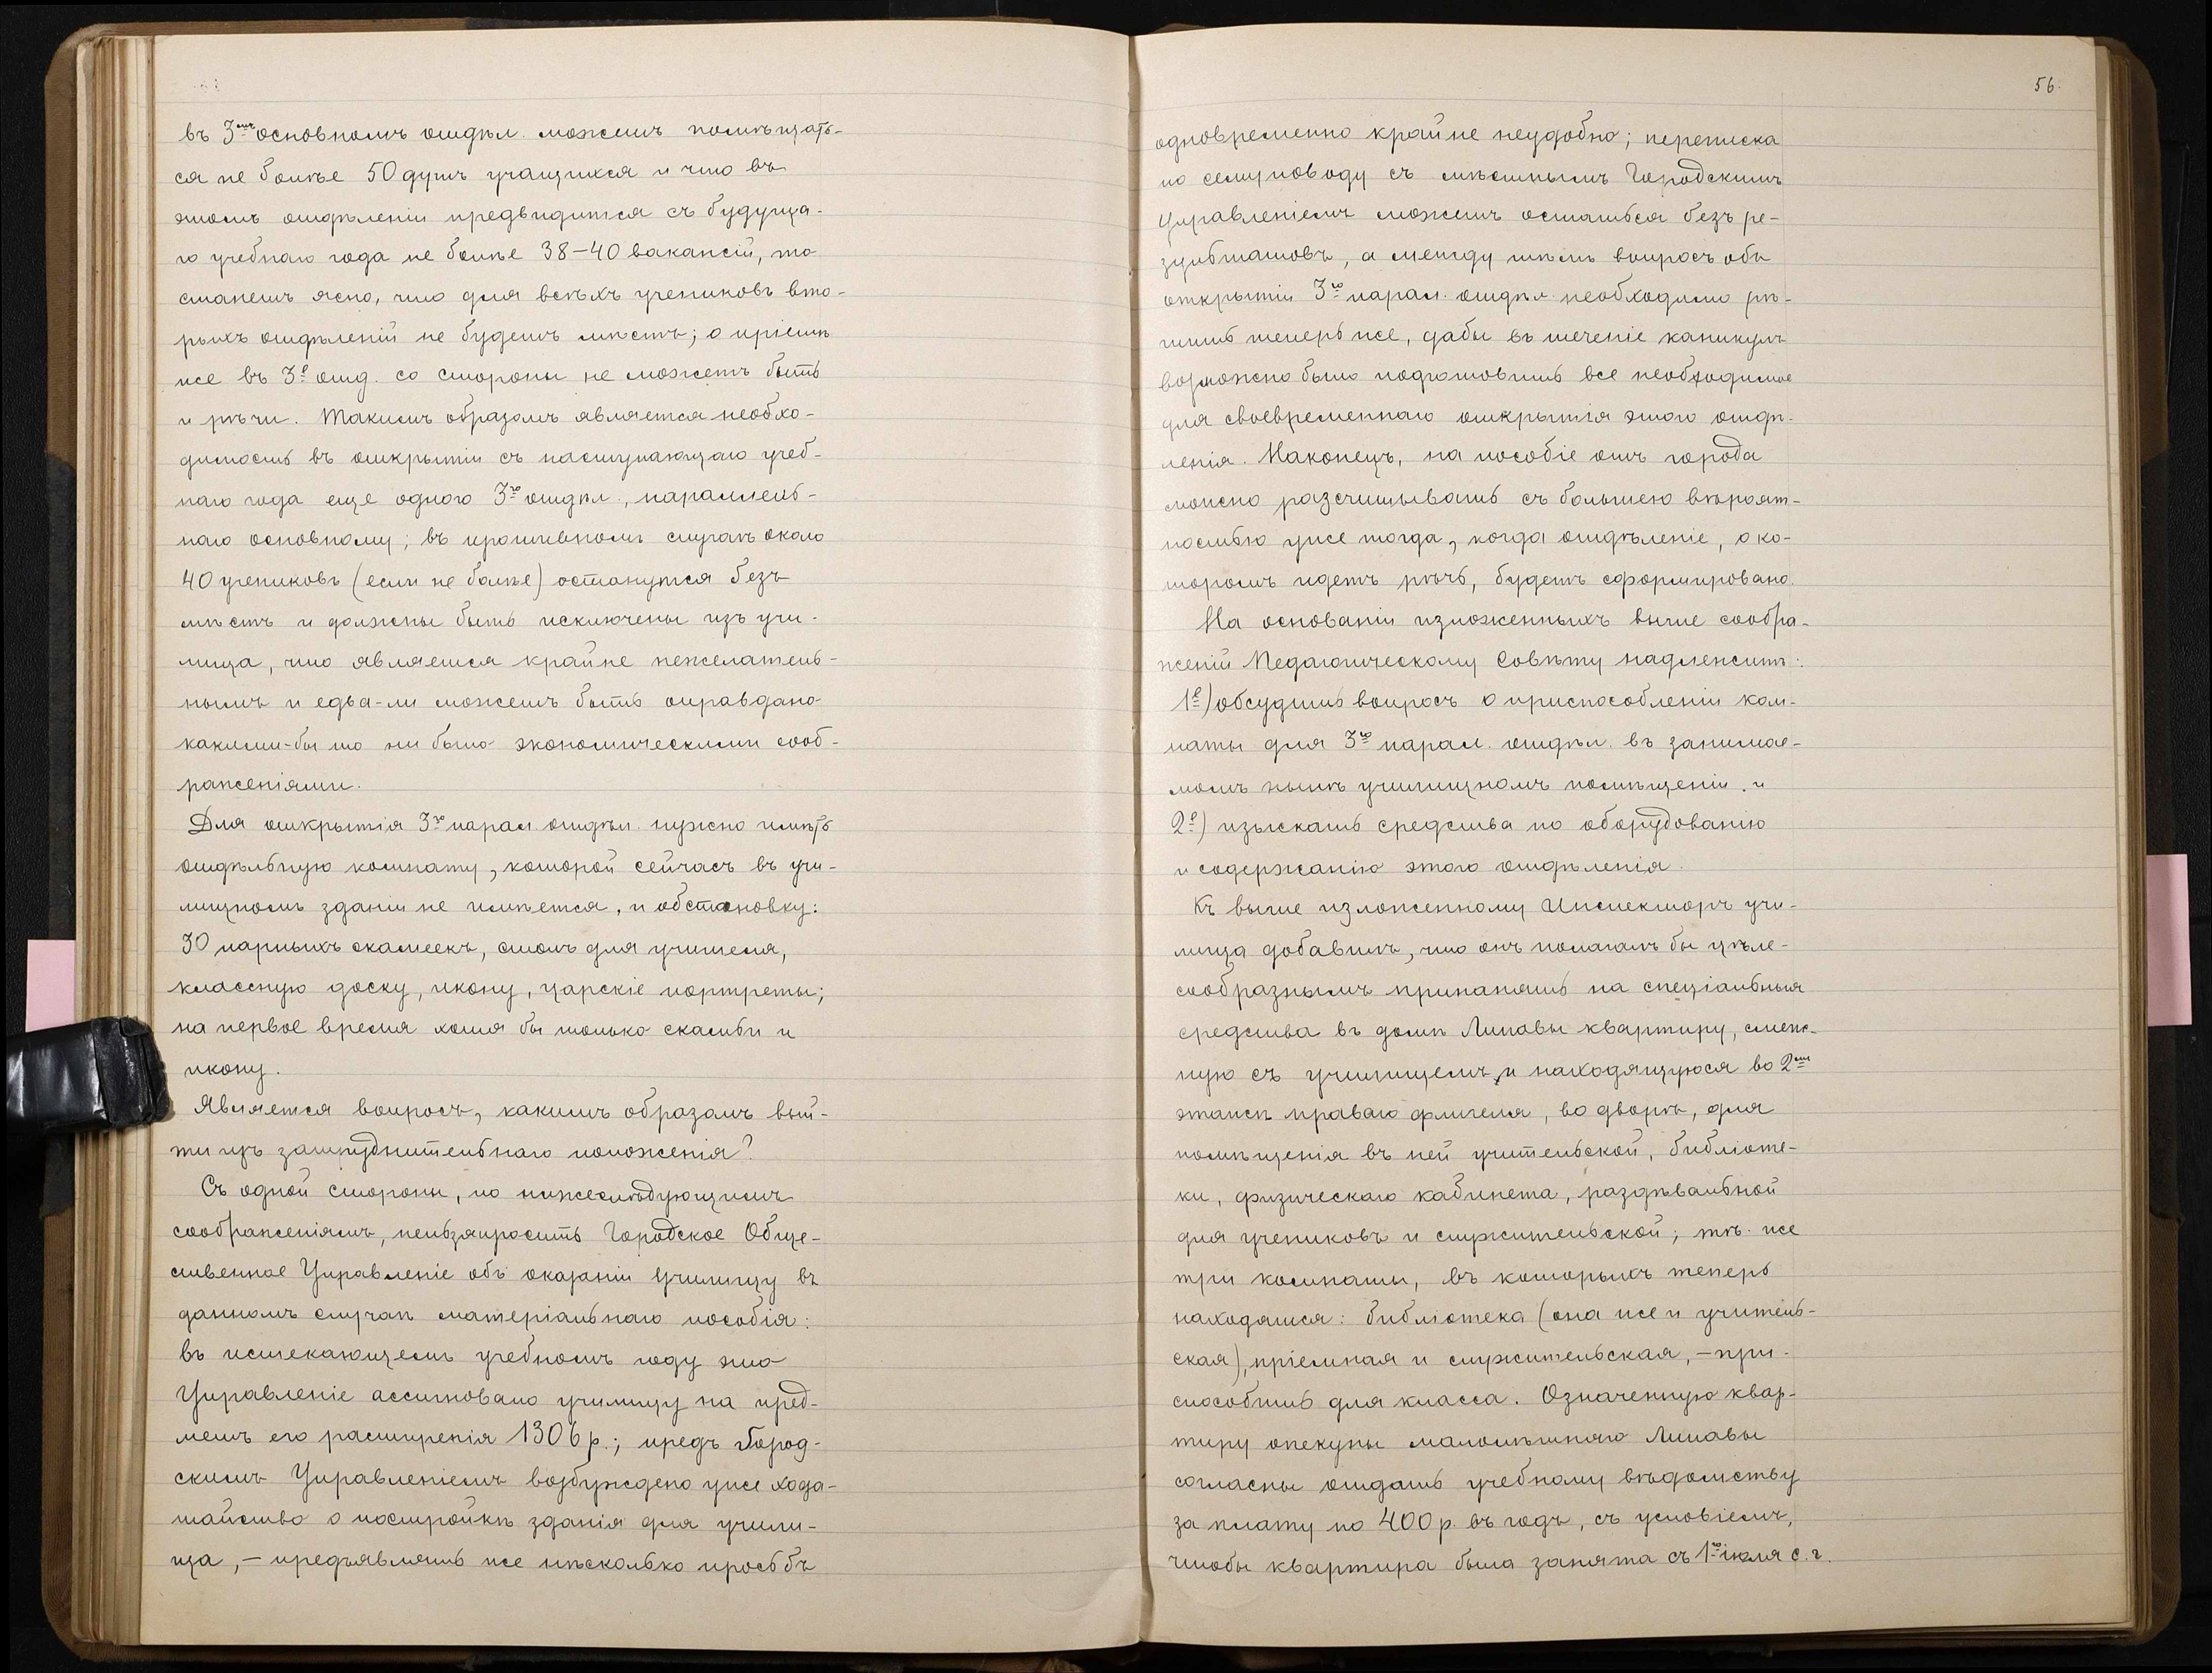 въ 3емъ основномъ отдѣл. можетъ помѣщать-
ся не болѣе 50 душъ учащихся и что въ
этомъ отдѣленіи предвидится съ будуща-
го учебнаго года не болѣе 38–40 вакансій, то
станетъ ясно, что для всѣхъ учениковъ вто-
рыхъ отдѣленій не будетъ мѣстъ; о пріемѣ
же въ 3е отд. со стороны не можетъ быть
и рѣчи. Такимъ образомъ является необхо-
димость въ открытіи съ наступающаго учеб-
наго года еще одного 3го отдѣл., параллель-
наго основному; въ противномъ случаѣ около
40 учениковъ (если не болѣе) останутся безъ
мѣстъ и должны быть исключены изъ учи-
лища, что является крайне нежелатель-
нымъ и едва-ли можетъ быть оправдано
какими-бы то ни было экономическими сооб-
раженіями.
Для открытія 3го парал. отдѣл. нужно имѣть
отдѣльную комнату, которой сейчасъ въ учи-
лищномъ зданіи не имѣется, и обстановку:
30 парныхъ скамеекъ, столъ для учителя,
классную доску, икону, царскіе портреты;
на первое время хотя бы только скамьи и
икону.
Является вопросъ, какимъ образомъ вый-
ти изъ затруднительнаго положенія?
Съ одной стороны, по нижеслѣдующимъ
соображеніямъ, нельзя просить Городское Обще-
ственное Управленіе объ оказаніи училищу въ
данномъ случаѣ матеріальнаго пособія:
въ истекающемъ учебномъ году это
Управленіе ассигновало училищу на пред-
метъ его расширенія 1306 р.; предъ Город-
скимъ Управленіемъ возбуждено уже хода-
тайство о постройкѣ зданія для учили-
ща, – предъявлять же нѣсколько просьбъ
56.
одновременно крайне неудобно; переписка
по сему поводу съ мѣстнымъ Городскимъ
Управленіемъ можетъ остаться безъ ре-
зультатовъ, а между тѣмъ вопросъ объ
открытіи 3го парал. отдѣл. необходимо рѣ-
шить теперь же, дабы въ теченіе каникулъ
возможно было подготовить все необходимое
для своевременнаго открытія этого отдѣ-
ленія. Наконецъ, на пособіе отъ города
можно разсчитывать съ большею вѣроят-
ностью уже тогда, когда отдѣленіе, о ко-
торомъ идетъ рѣчь, будетъ сформировано.
На основаніи изложенныхъ выше сообра-
женій Педагогическому Совѣту надлежитъ:
1е) обсудить вопросъ о приспособленіи ком-
наты для 3го парал. отдѣл. въ занимае-
момъ нынѣ училищномъ помѣщеніи, и
2е) изыскать средства по оборудованію
и содержанію этого отдѣленія.
Къ выше изложенному Инспекторъ учи-
лища добавилъ, что онъ полагалъ бы цѣле-
сообразнымъ принанять на спеціальныя
средства въ домѣ Липавы квартиру, смеж-
ную съ училищемъ и находящуюся во 2мъ
этажѣ праваго флигеля, во дворѣ, для
помѣщенія въ ней учительской, библіоте-
ки, физическаго кабинета, раздѣвальной
для учениковъ и служительской; тѣ же
три комнаты, въ которыхъ теперь
находятся: библіотека (она же и учитель-
ская), пріемная и служительская, – при-
способить для класса. Означенную квар-
тиру опекуны малолѣтняго Липавы
согласны отдать учебному вѣдомству
за плату по 400 р. въ годъ, съ условіемъ,
чтобы квартира была занята съ 1го іюля с. г.